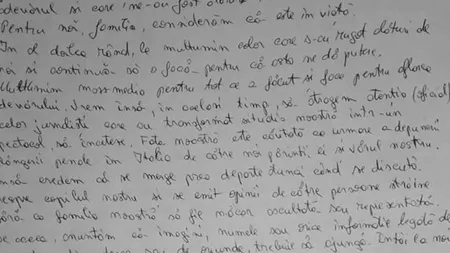 adevărul și care ne-au fost
Pentru noi, familia, considerăm că este în viață.
În al doilea rând, le mulțumim celor care s-au rugat alături de
noi și continuă să o facă pentru că asta ne dă putere.
Mulțumim mass-media pentru tot ce a făcut și face pentru aflarea
adevărului. Vrem însă, în același timp, să atragem atenția (oficial)
celor jurnaliști care au transformat situația noastră într-un
spectacol, să înceteze. Fata noastră este căutată ca urmare a depunerii
plângerii penale în Italia de către noi părinți ei și vărul nostru.
Însă credem că se merge prea departe atunci când se discută
despre copilul nostru și se emit opinii de către persoane străine
fără ca familia noastră să fie măcar ascultată sau reprezentată.
De aceea, anunțăm că imagini, numele sau orice informație legată de
sau de oriunde, trebuie să ajungă întâi la noi